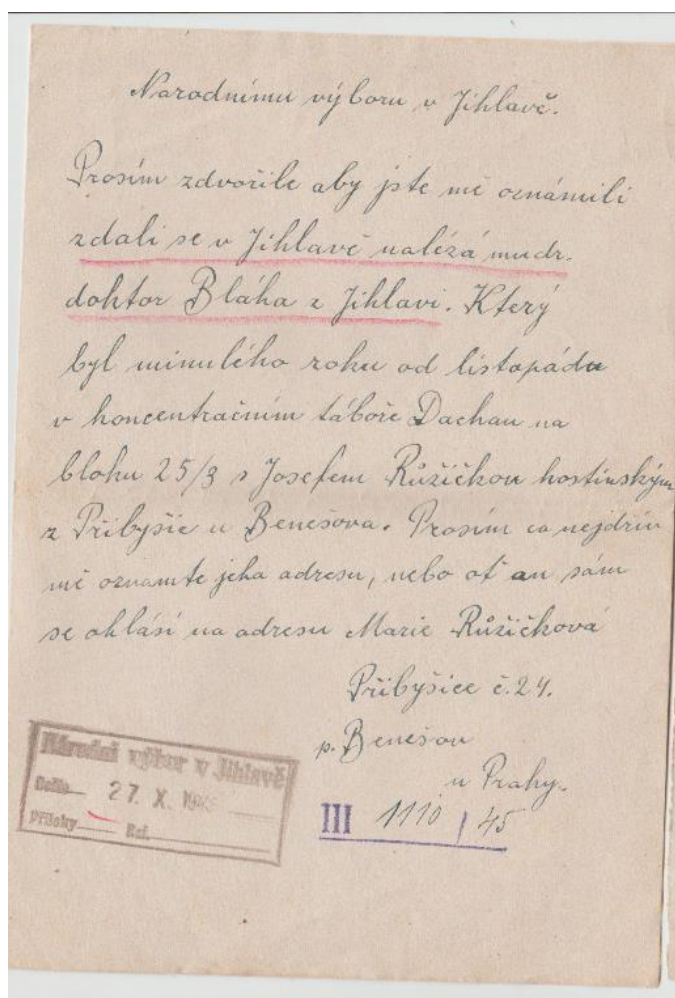 Narodnímu výboru v Jihlavě.
Prosím zdvořile aby jste mě oznámili
zdali se v Jihlavě nalézá mudr.
doktor Bláha z Jihlavi. Který
byl minulého roku od listopádu
v koncentračním táboře Dachau na
bloku 25/3 s Josefem Růžičkou hostinským
z Přibyšic u Benešova. Prosím co nejdřív
mě oznamte jeho adresu, nebo ať on sám
se ohlásí na adresu Marie Růžičková
Přibyšice č. 24.
p. Benešov
u Prahy.
Národní výbor v Jihlavě
Došlo 27. X. 1945
Přílohy Ref.
III 1110 / 45